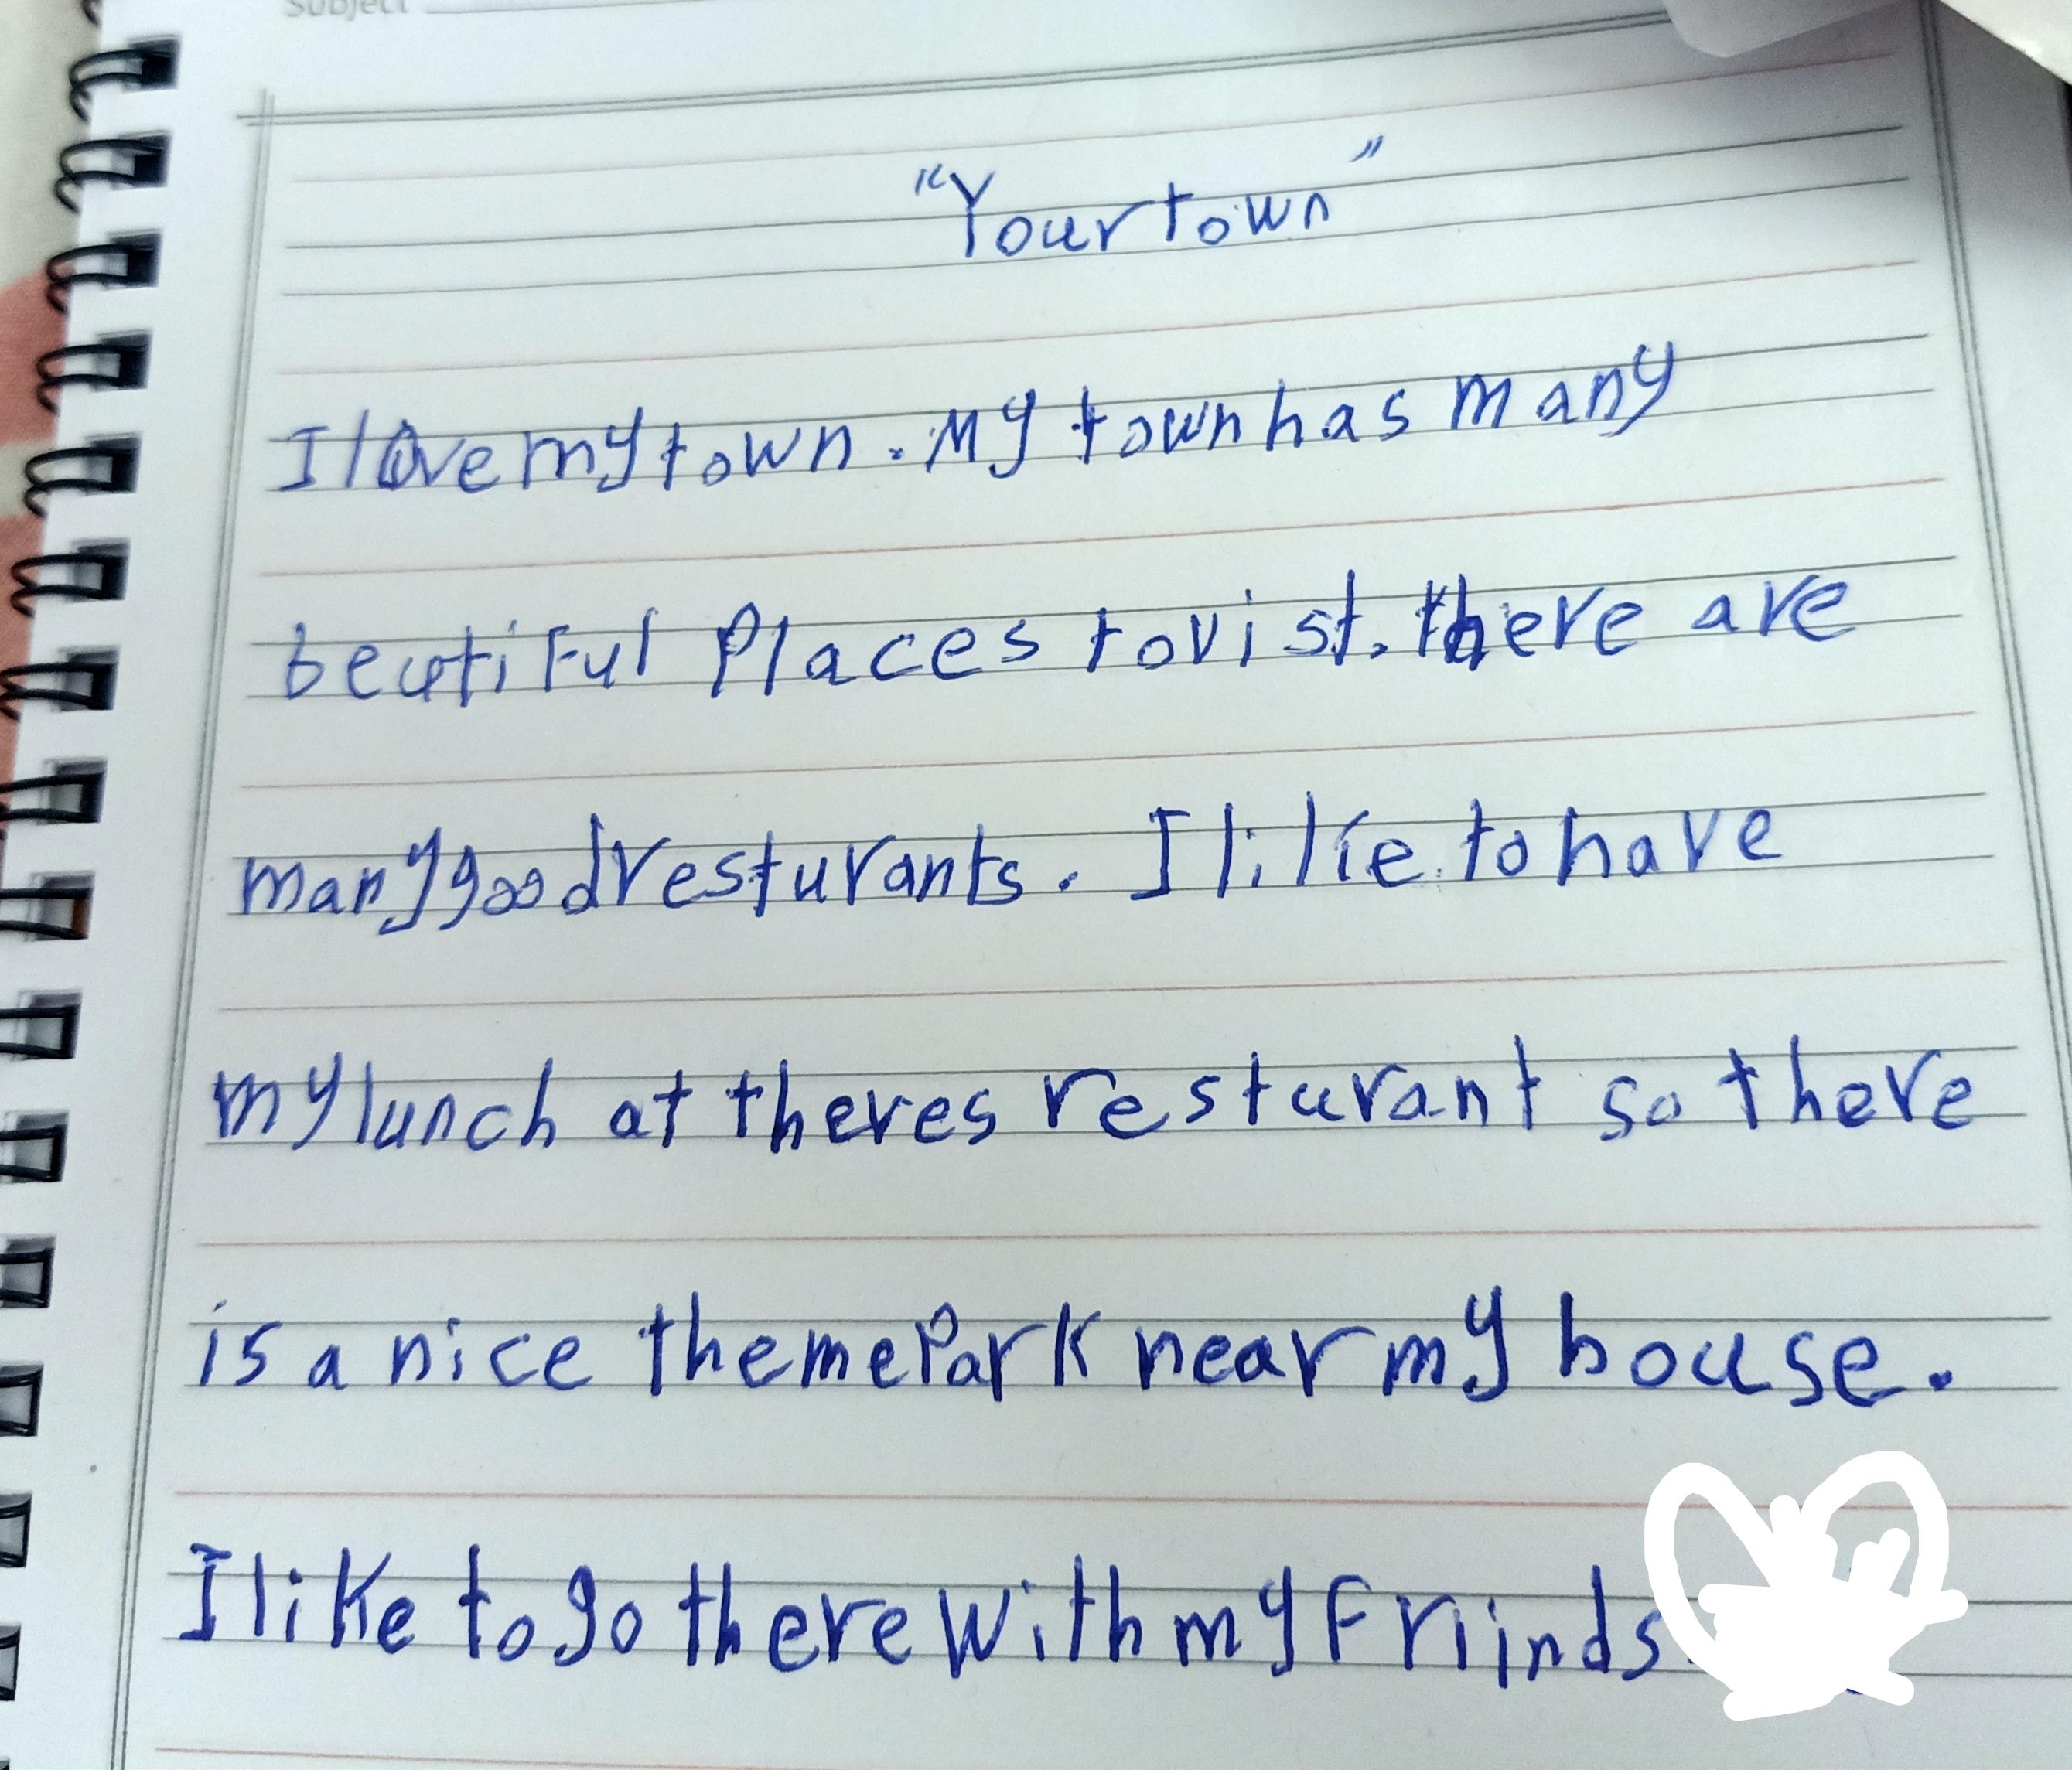 Subject
"Your town"
I love my town. My town has many
beutiful Places to vist. there are
many good resturants. I like to have
my lunch at theres resturant so there
is a nice theme Park near my house.
I like to go there with my Friinds